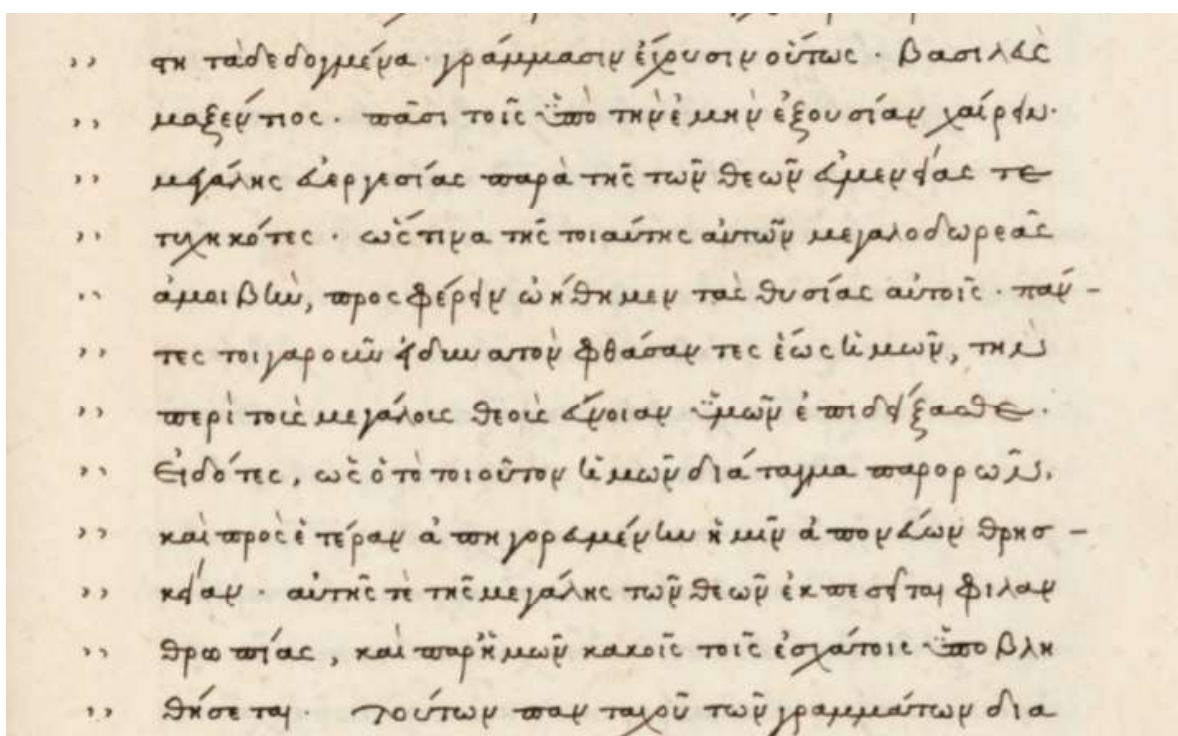 ,, τη τὰ δεδογμένα· γράμμασιν εἴρουσιν οὕτως· βασιλεὺς
,, μαξέντιος· πᾶσι τοῖς ὑπὸ τὴν ἐμὴν ἐξουσίαν χαίρειν·
,, μεγάλης εὐεργεσίας παρὰ τῆς τῶν θεῶν εὐμενείας τε
,, τυχηκότες· ὥς τινα τῆς τοιαύτης αὐτῶν μεγαλοδωρεᾶς
,, ἀμοιβὴν, προσφέρειν ᾠήθημεν τὰς θυσίας αὐτοῖς· πάν -
,, τες τοιγαροῦν εἰ δυνατὸν φθάσαντες ἕως ἡμῶν, τὴν
,, περὶ τοὺς μεγάλους θεοὺς εὔνοιαν ὑμῶν ἐπιδείξασθε·
,, Εἰδότες, ὡς ὁ τὸ τοιοῦτον ἡμῶν διάταγμα παρορῶν,
,, καὶ πρὸς ἑτέραν ἀπηγορευμένην ἡμῖν ἀπονεύων θρησ -
,, κείαν· αὐτῆς τὲ τῆς μεγάλης τῶν θεῶν ἐκπεσεῖται φιλαν
,, θρωπίας, καὶ παρ' ἡμῶν κακοῖς τοῖς ἐσχάτοις ὑποβλη
,, θήσεται· τούτων πανταχοῦ τῶν γραμμάτων δια